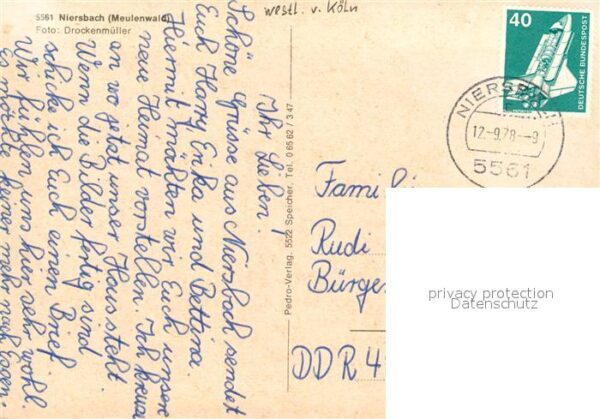 5561 Niersbach (Meulenwald)
Foto: Drockenmüller
westl. v. Köln
40
DEUTSCHE BUNDESPOST
NIERSB
12.-9.78.--9
5561
Ihr Lieben!
Schöne Grüsse aus Niersbach sendet
Euch Harry, Erika und Bettina
Hiermit mächten wir Euch unsere
neue Heimat vorstellen. Ich kreuze
an wo jetzt unser Haus steht
Wenn die Bilder fertig sind
schicke ich Euch einen Brief
Wir fühlen uns hier sehr wohl.
Es möchte keiner mehr nach Essen.
Pedro-Verlag. 5522 Speicher. Tel. 0 65 62 / 3 47
Famili
Rudi
Bürge
DDR 4
privacy protection
Datenschutz